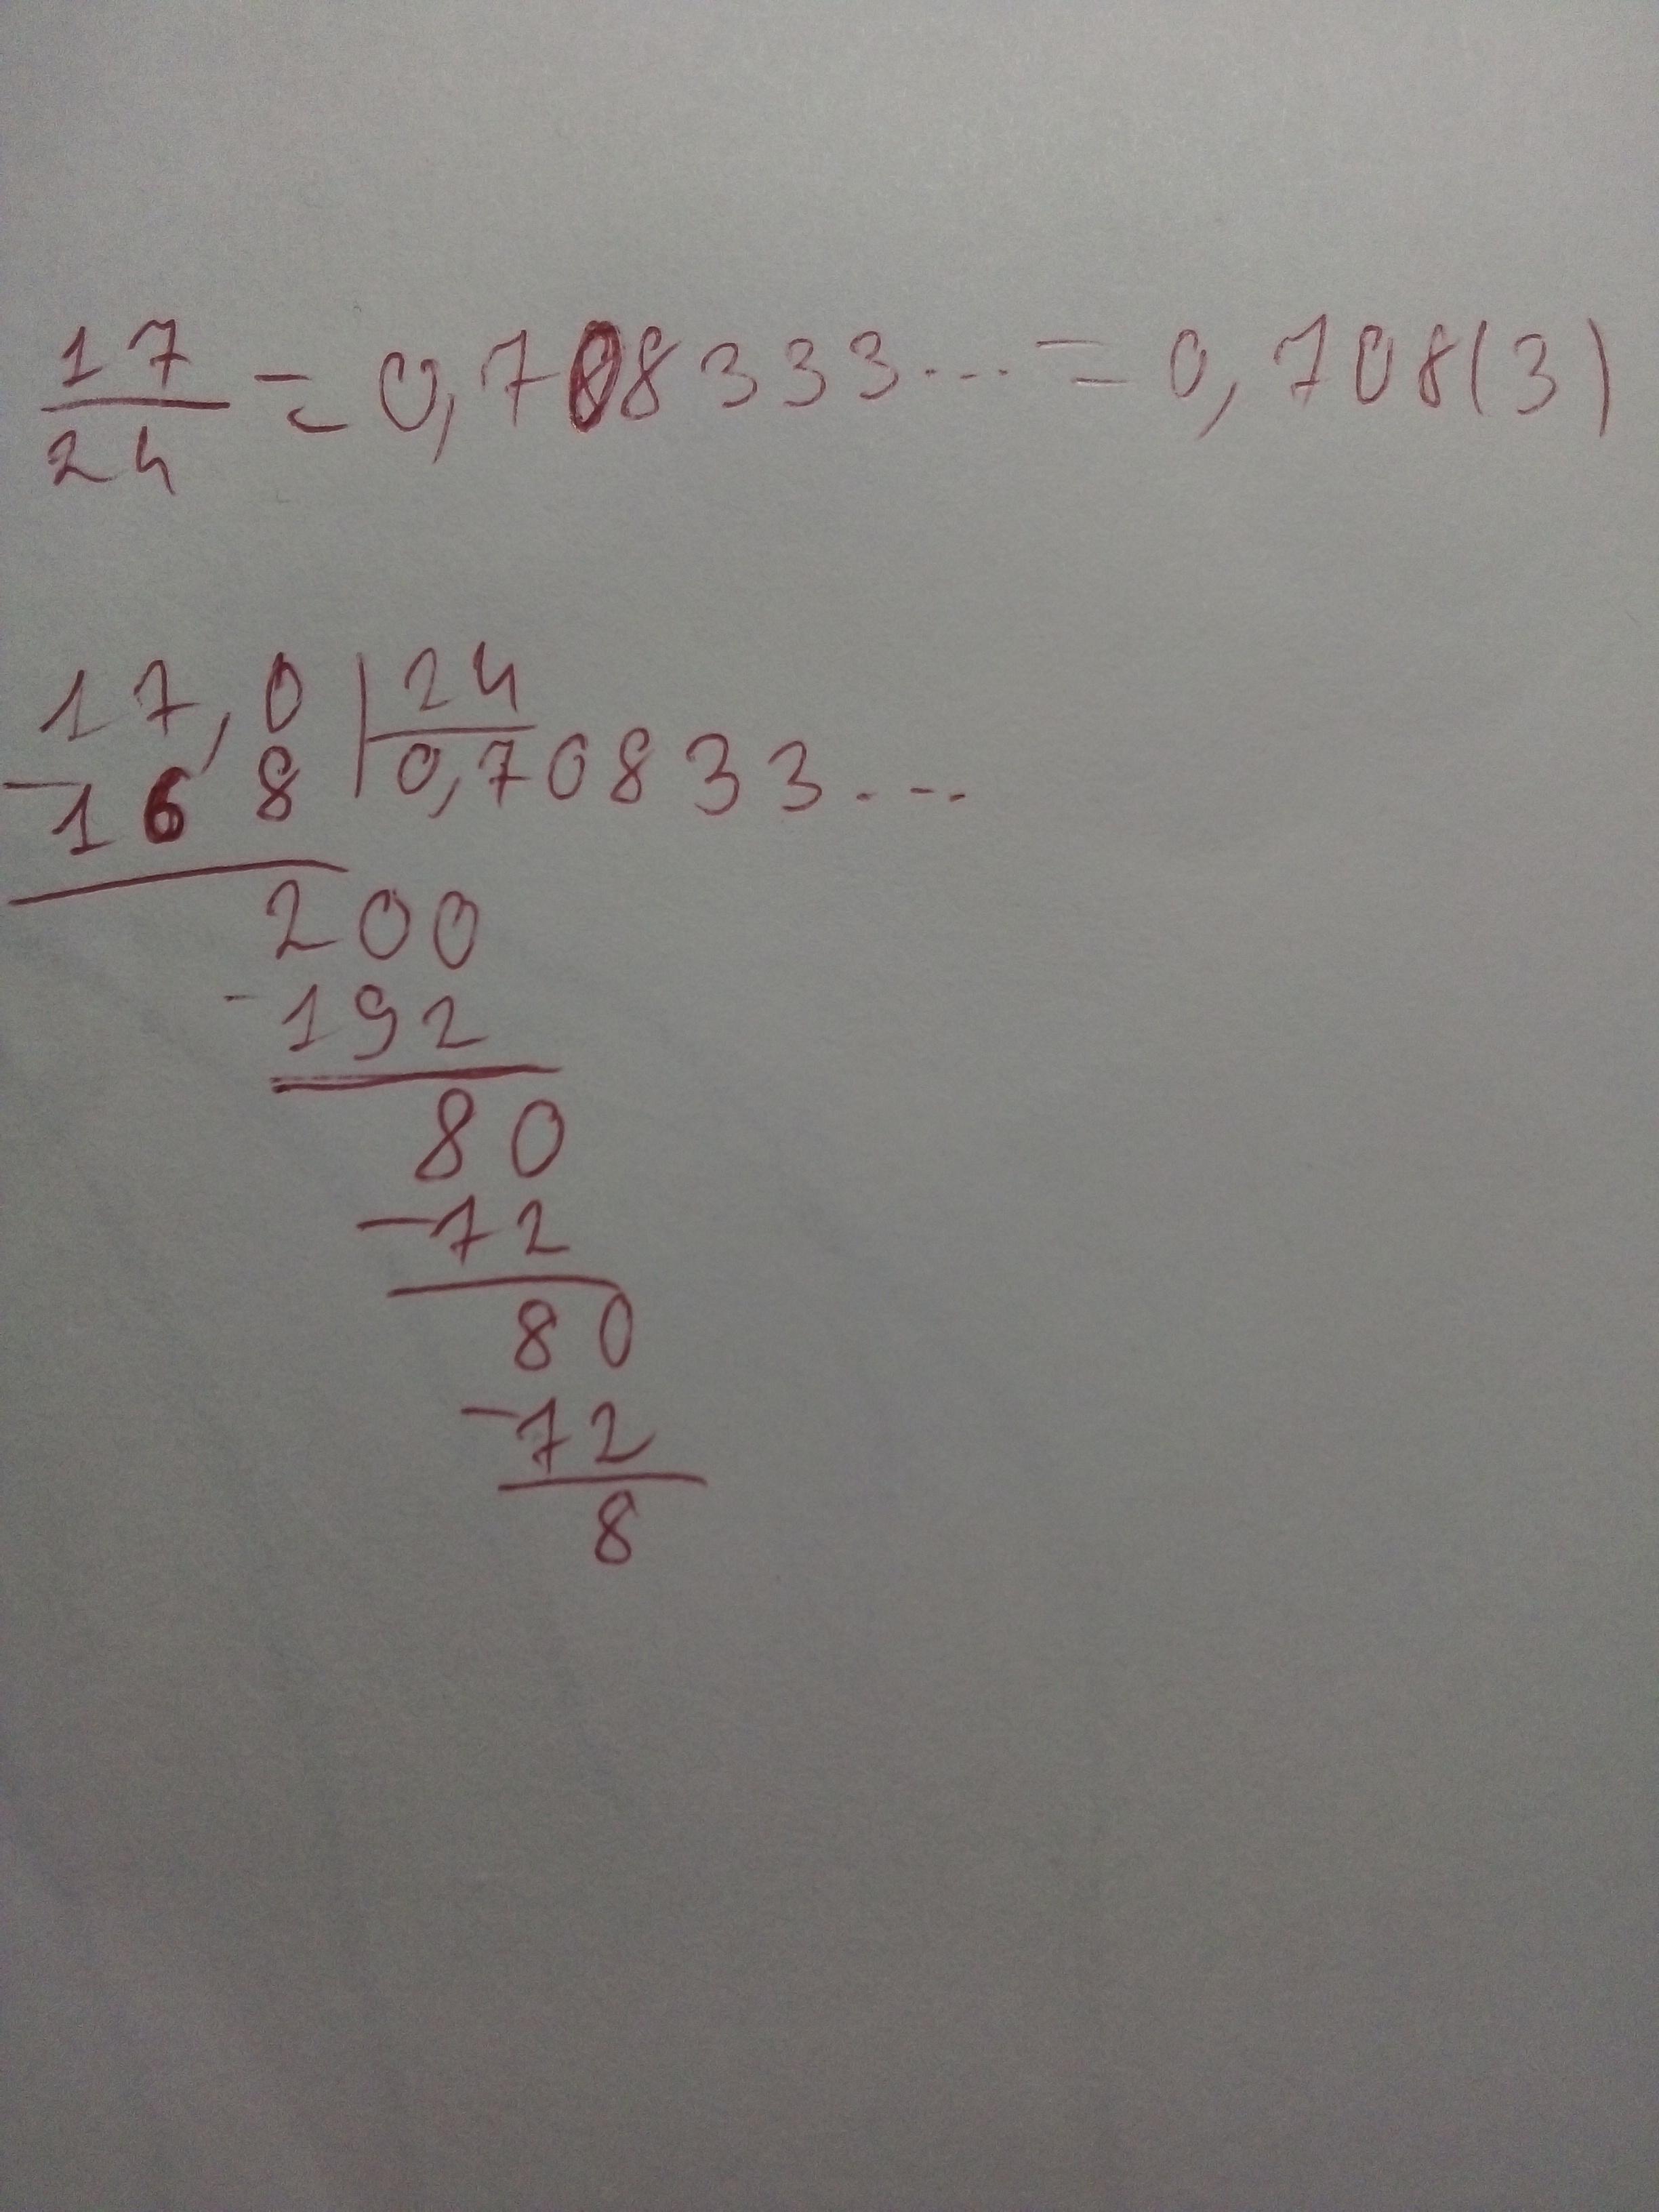 17/24 = 0,708333... = 0,708(3)
17,0 | 24
-168 | 0,70833...
200
-192
80
-72
80
-72
8